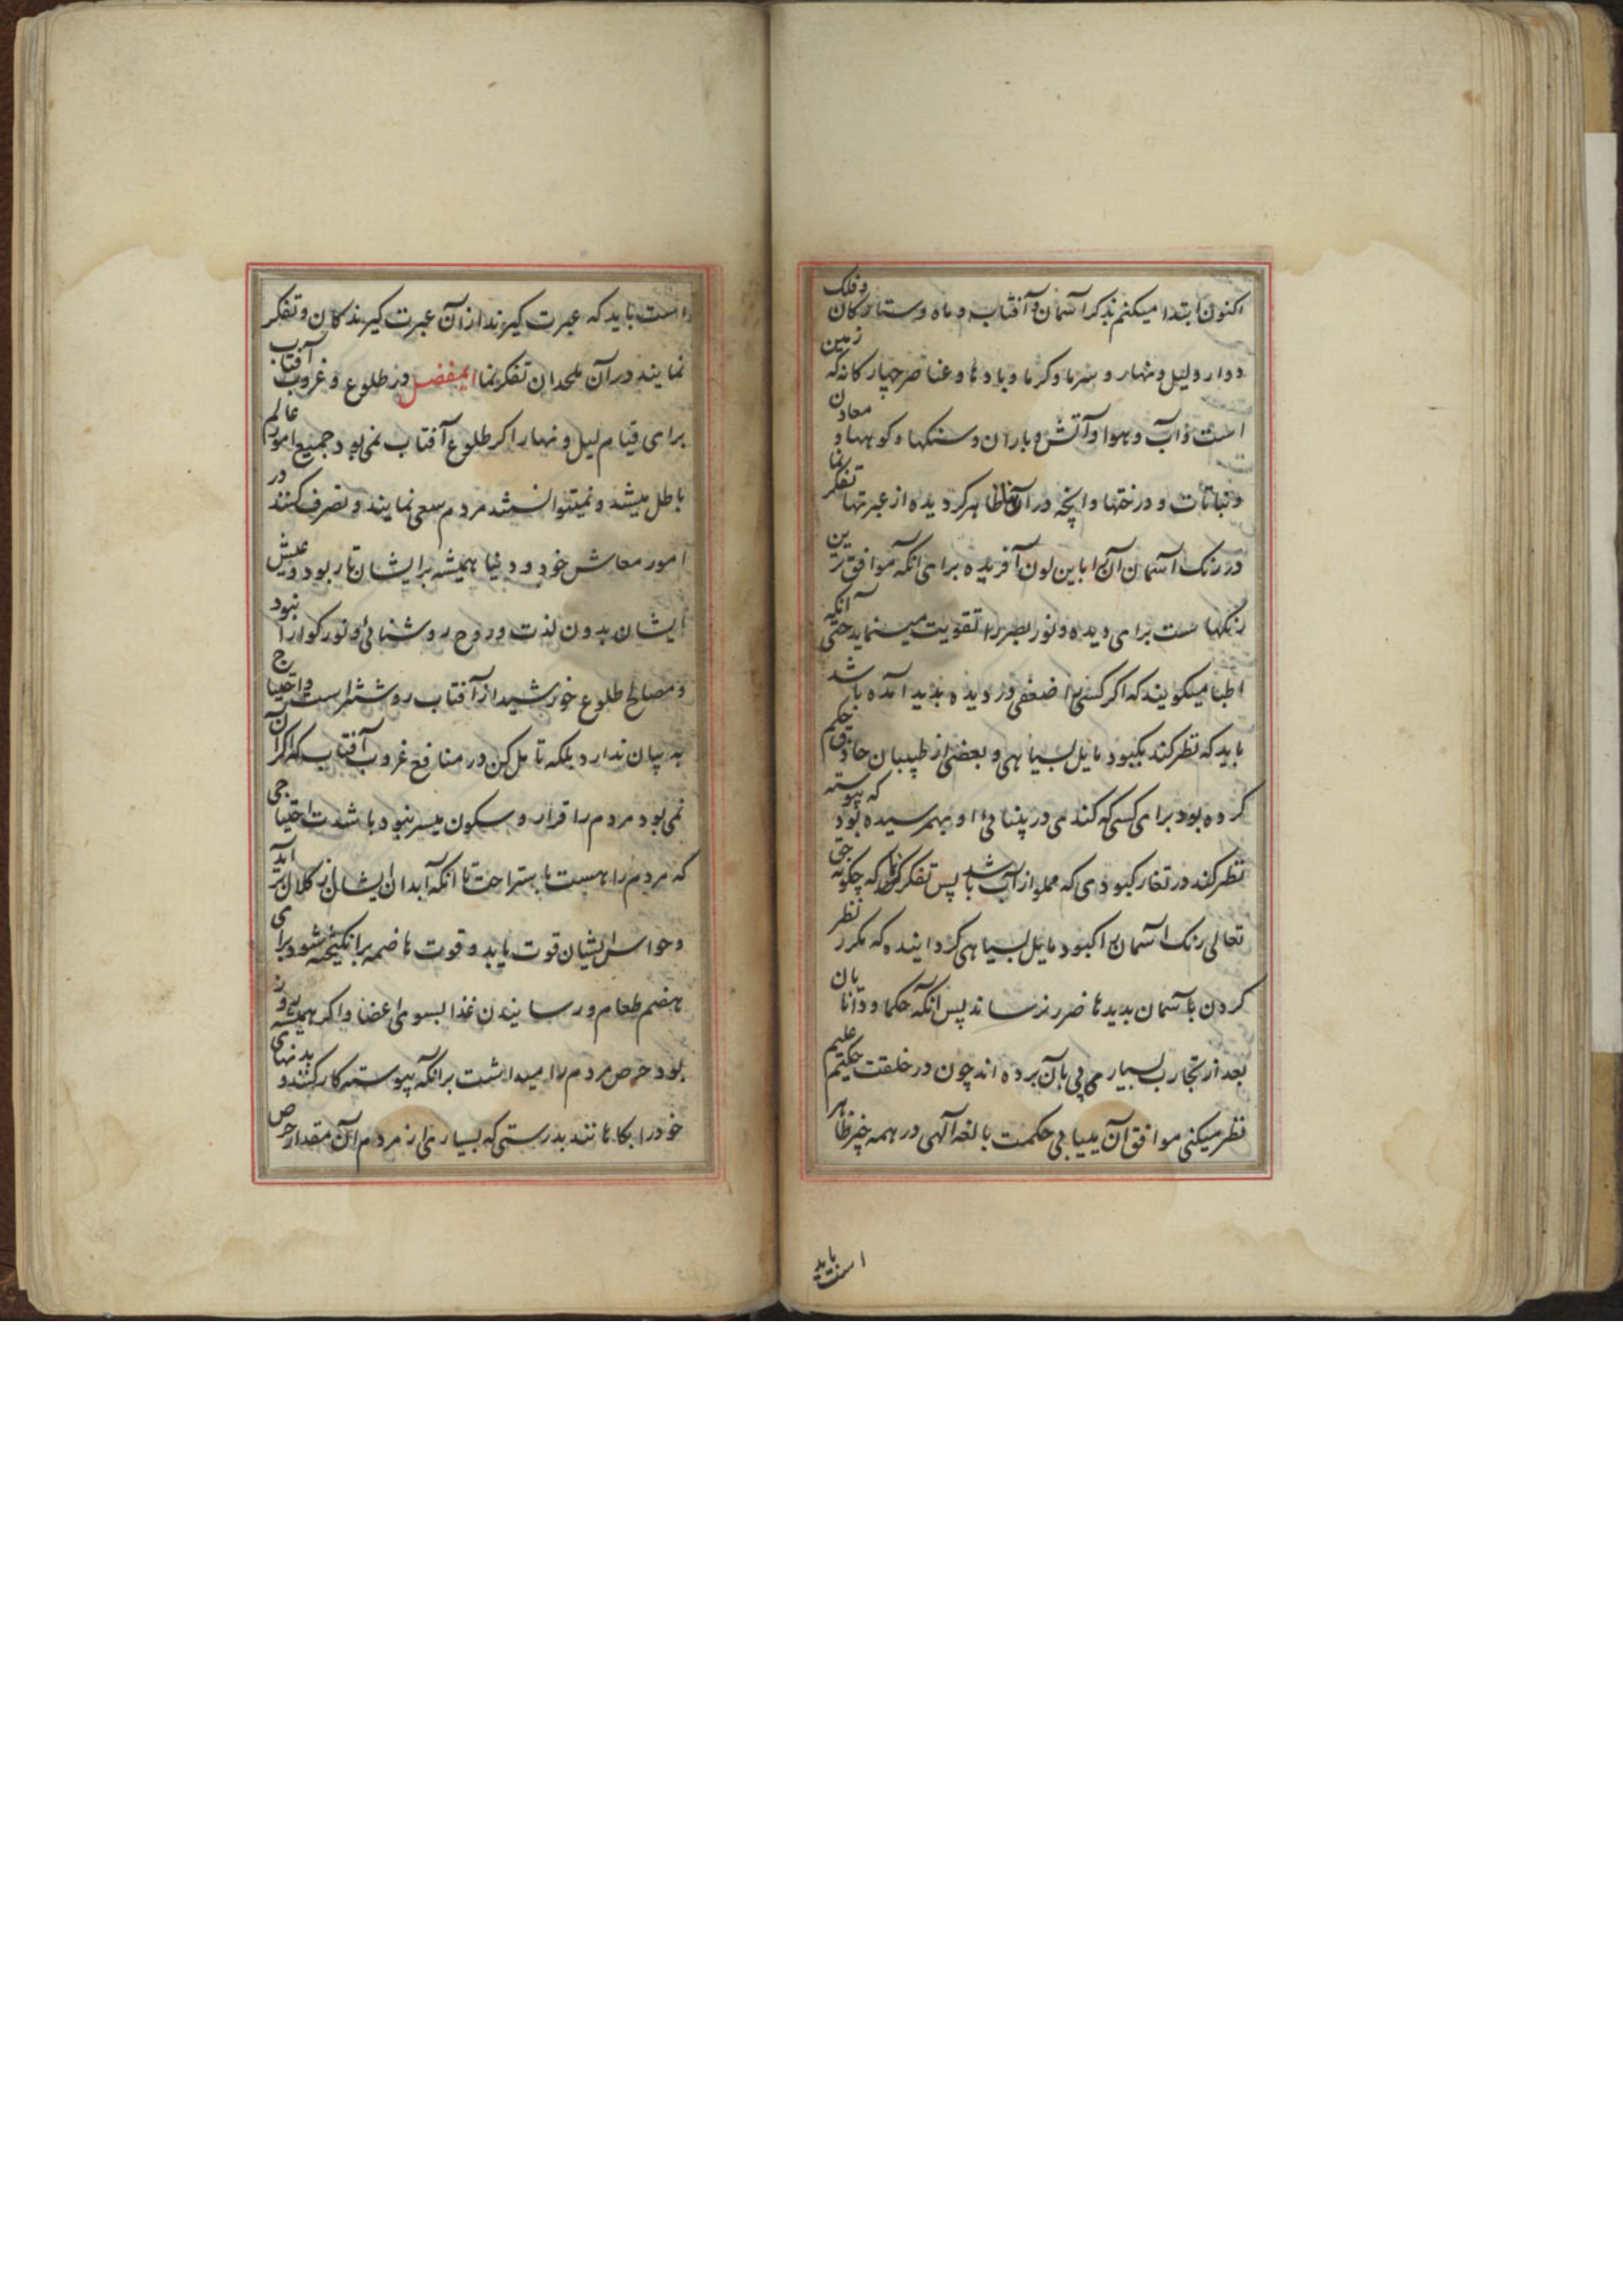 اکنون ابتدا میکنم بذکر آسمان و آفتاب و ماه و ستارکان و فلک
دوار و لیل و نهار و سرما و کرما و بادها و عناصر چهارکانه که زمین
است و آب و هوا و آتش و باران و سنکها و کوهها و معادن
و نباتات و درختها و آنچه در آن ظاهر کردیده از عبرتها تفکر نما
در رنک آسمان که آن را باین لون آفریده برای آنکه موافق ترین
رنکها ست برای دیده و نور بصر را تقویت مینماید حتی آنکه
اطبا میکویند که اکر کسی را ضعفی در دیده پدید آمده باشد
باید که نظر کند بکبود مایل بسیاهی و بعضی از طبیبان حاذق حکم
کرده بود برای کسی که کندی در بینائی او بهمرسیده بود که پیوسته
نظر کند در تغار کبودی که مملو از آب باشد پس تفکر نما که چکونه حق
تعالی رنک آسمان را کبود مایل بسیاهی کردانیده که مکرر نظر
کردن بآسمان بدیدها ضرر نرساند پس آنکه حکما و دانایان
بعد از تجارب بسیار پی بآن برده اند چون در خلقت حکیم علیم
نظر میکنی موافق آن مییابی حکمت بالغه آلهی در همه چیز ظاهر
است باید
است باید که عبرت کیرند از آن عبرت کیرندکان و تفکر
نمایند در آن ملحدان تفکر نما ایمفضل در طلوع و غروب آفتاب
برای قیام لیل و نهار اکر طلوع آفتاب نمی بود جمیع امور عالم
باطل میشد و نمیتوانستند مردم سعی نمایند و تصرف کنند در
امور معاش خود و دنیا همیشه برایشان تار بود و عیش
ایشان بدون لذت و روح روشنائی و نور کوارا نبود
و مصالح طلوع خورشید از آفتاب روشنتر است و احتیاج
به بیان ندارد بلکه تامل کن در منافع غروب آفتاب که اکر آن
نمی بود مردم را قرار و سکون میسر نبود با شدت احتیاجی
که مردم را هست باستراحت تا آنکه ابدان ایشان از کلال برآید
و حواس ایشان قوت یابد و قوت هاضمه برانکیخته شود برای
هضم طعام و رسانیدن غذا بسوی اعضا و اکر همیشه روز
بود حرص مردم را میداشت برآنکه پیوسته کار کنند و بدنهای
خود را بکاهانند بدرستی که بسیاری از مردم آن مقدار حرص